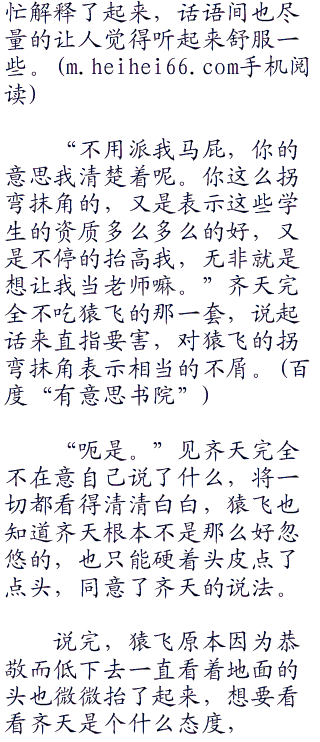 忙解释了起来，话语间也尽
量的让人觉得听起来舒服一
些。(m.heihei66.com手机阅
读)
“不用派我马屁，你的
意思我清楚着呢。你这么拐
弯抹角的，又是表示这些学
生的资质多么多么的好，又
是不停的抬高我，无非就是
想让我当老师嘛。”齐天完
全不吃猿飞的那一套，说起
话来直指要害，对猿飞的拐
弯抹角表示相当的不屑。(百
度“有意思书院”)
“呃是。”见齐天完全
不在意自己说了什么，将一
切都看得清清白白，猿飞也
知道齐天根本不是那么好忽
悠的，也只能硬着头皮点了
点头，同意了齐天的说法。
说完，猿飞原本因为恭
敬而低下去一直看着地面的
头也微微抬了起来，想要看
看齐天是个什么态度，